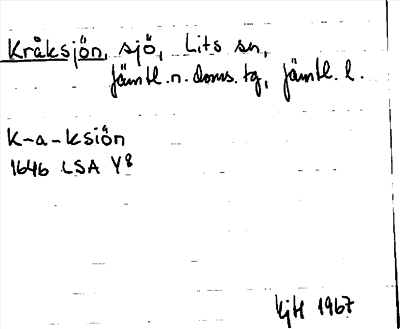 Kråksjön, sjö, Lits sn,
Jämtl. n. doms. tg, Jämtl. l.
K-a-ksiön
1646 LSA Y8
KjH 1967